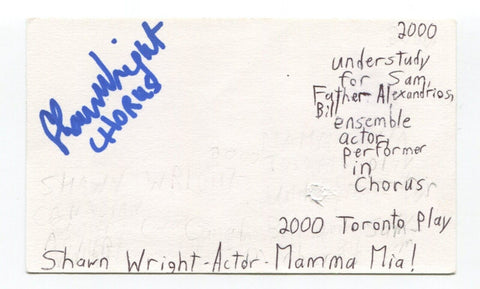 Shawn Wright
CHORUS
2000
understudy
for Sam,
Father Alexandrios,
Bill
ensemble
actor,
performer
in
Chorus
2000 Toronto Play
Shawn Wright-Actor-Mamma Mia!